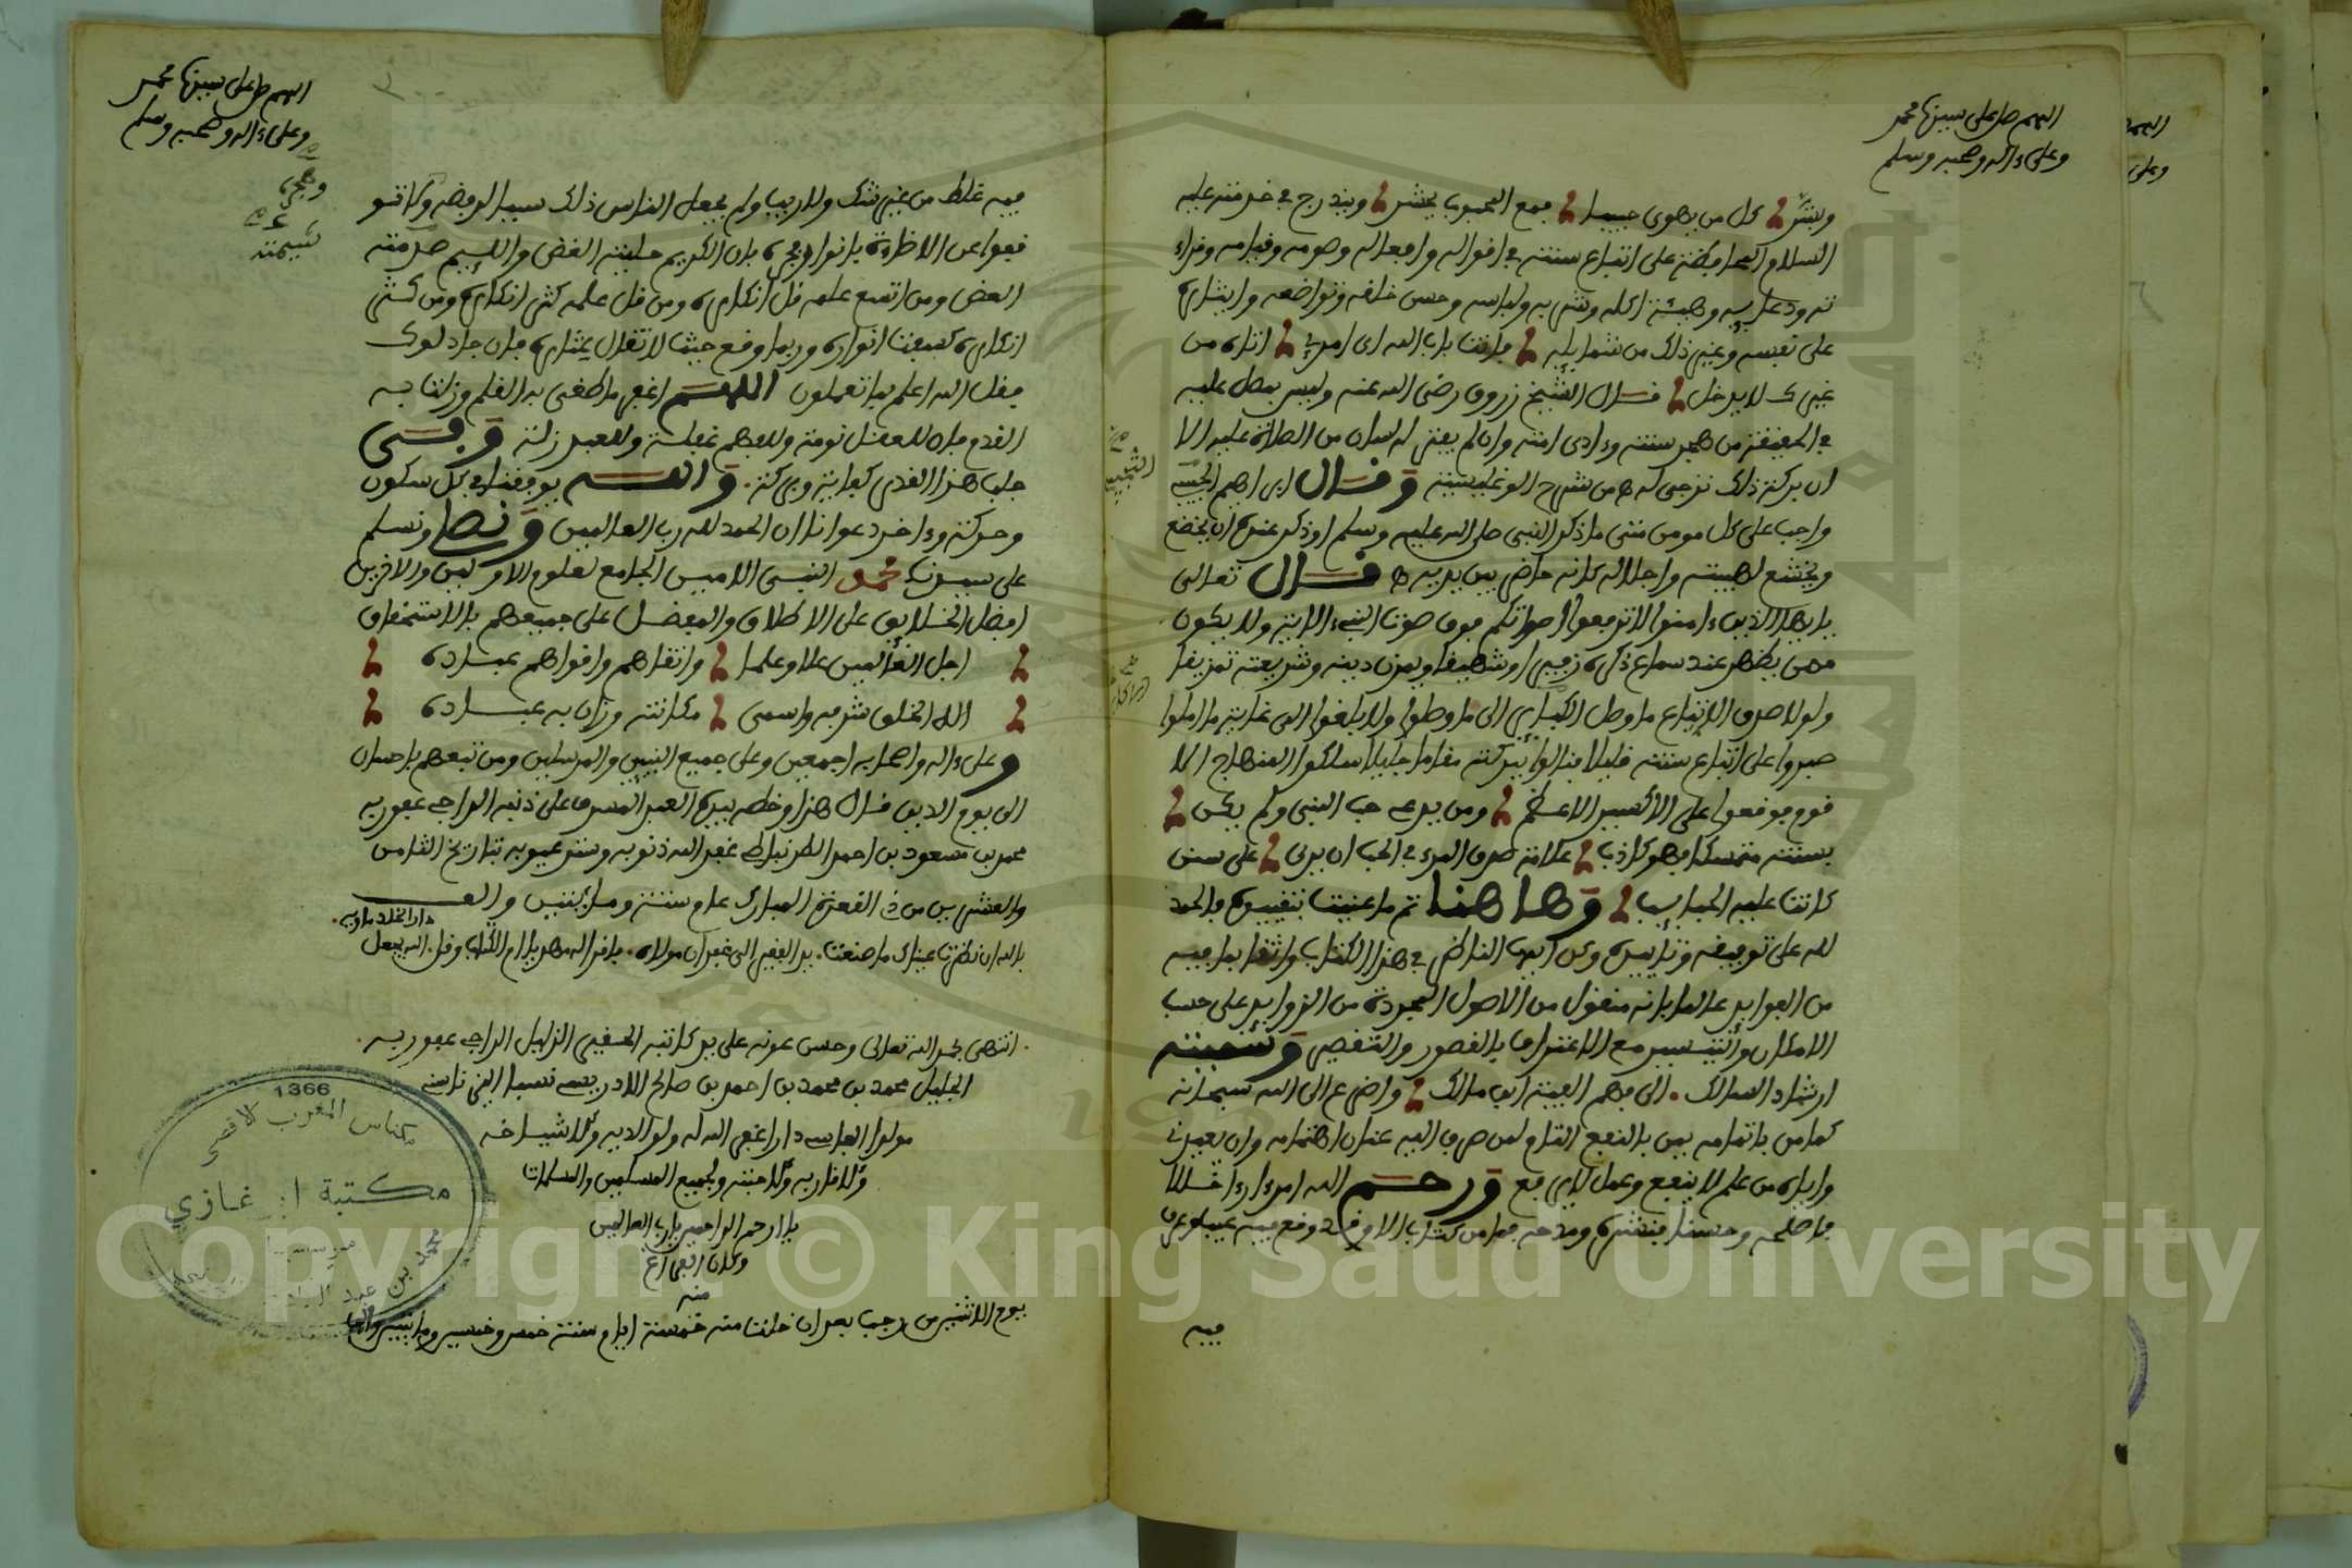 اللهم صل على سيدنا محمد
وعلى ءاله وصحبه وسلم
كل من يهوى حبيبا فمع المحبوب يحشر ويندرج في خدمته عليه
السلام المحافظة على اتباع سنته في اقواله وافعاله وصومه وقيامه وقراء
ته ودعايه وهيئة اكله وشربه ولباسه وحسن خلقه وتواضعه وايثاره
على نفسه وغير ذلك من شمايله فانت باب الله اى امرئ اتاه من
غيرك لا يدخل قال الشيخ زروق رضي الله عنه وليس يصل عليه
في الحقيقة من هجر سنته وءاذى امته وان لم يفتر لسان من الصلاة عليه الا
ان بركة ذلك ترجى له من شرح الوغليسية وقال ابراهيم
واجب على كل مومن متى ما ذكر النبي صلى الله عليه وسلم او ذكر عنده ان يخضع
ويخشع لهيبته واجلاله كانه حاضر بين يديه قال تعالى
يا ايها الذين ءامنوا لا ترفعوا اصواتكم فوق صوت النبيء الاية ولا يكون
ممن يظهر عند سماع ذكره زفيرا وشهيقا ويمزق دينه وشريعته تمزيقا
ولولا صدق الاتباع ما وصل الكبار الى ما وصلوا ولا بلغوا الى غاية ما املوا
صبروا على اتباع سنته قليلا فنالوا ببركته مقاما جليلا سلكوا المنهاج الا
قوم فوقعوا على الاكسير الاعظم ومن يدعي حب النبي ولم يكن
بسنته متمسكا فهو كاذب علامة صدق المرء في الحب ان يرى على سنن
كانت عليه الحبايب وها هنا تم ما عنيت بتقييده فالحمد
لله على توفيقه وتاييده وكن ايها الناظر في هذا الكتاب واثقا بما فيه
من الفوايد عالما بانه منقول من الاصول المجردة من الزوايد على حسب
الامكان والتيسير مع الاعتراف بالقصور والتقصير وسميته
ارشاد السالك الى فهم الفية ابن مالك واضرع الى الله سبحانه
كما من باتمامه يمن بالنفع التام لمن صرف اليه عنان اهتمامه وان يعيذني
واياه من علم لا ينفع وعمل لا يرفع ورحم الله امرءا رءا خللا
فاصلحه وحسنا فنشره ومدحه فما من كتاب الا وقد وقع فيه عيب او عرف
فيه
اللهم صل على سيدنا محمد
وعلى ءاله وصحبه وسلم
فيه غلط من غير شك ولا ريب ولم يجعل الناس ذلك سببا لرفضه ولا تو
قفوا عن الاظاءة بانواره بان الكريم حليته الغض واللييم صرمته
العض ومن اتسع علمه قل انكاره ومن قل علمه كثر انكاره ومن كثر
انكاره كسفت انواره وربما وقع حيث لا تقال عثاره فان جادلوك
فقل الله اعلم بما تعملون اللهم اغفر ما طغى به القلم وزلت به
القدم فان للعقل نومة وللفهم غفلة وللعبد زلة وفي
جلب هذا القدر كفاية وبركة والله يوفقنا في كل سكون
وحركة وءاخر دعوانا ان الحمد لله رب العالمين ونصلي ونسلم
على سيدنا محمد النبيء الامين الجامع لعلوم الاولين والاخرين
افضل الخلايق على الاطلاق والمفضل على جميعهم بالاستحقاق
اجل العالمين علا وعلما واتقاهم واقواهم عباده
اله الخلق شرفه واسمى مكانته وزان به عباده
وعلى ءاله واصحابه اجمعين وعلى جميع النبيين والمرسلين ومن تبعهم باحسان
الى يوم الدين قال هذا وخطه بيده العبد المسرف على ذنبه الراجي عفو ربه
محمد بن مسعود بن احمد الطرنباطي غفر الله ذنوبه وستر عيوبه بتاريخ الثامن
والعشرين من ذي القعدة المبارك عام ستة ومايتين والف
بالله ان نظرت عيناك ما صنعت يد الفقير الى غفران مولاه فاقرا له بام الكتاب وقل الله يجعل
دار الخلد ماويه
انتهى بحمد الله تعالى وحسن عونه على يد كاتبه الحقير الذليل الراجي عفو ربه
الجليل محمد بن محمد بن احمد بن صالح الادريسي نسبا
مولدا الفاسي دارا غفر الله له ولوالديه ولاشياخه
ولاقاربه ولاحبته ولجميع المسلمين والمسلمات
يا ارحم الراحمين يا رب العالمين
وكان الفراغ
منه
يوم الاثنين من رجب بعد ان خلت منه خمسة ايام سنة خمس وخمسين ومايتين والف
1366
مكناس المغرب الاقصى
مكتبة غازي
محمد بن عبد
Copyright © King Saud University